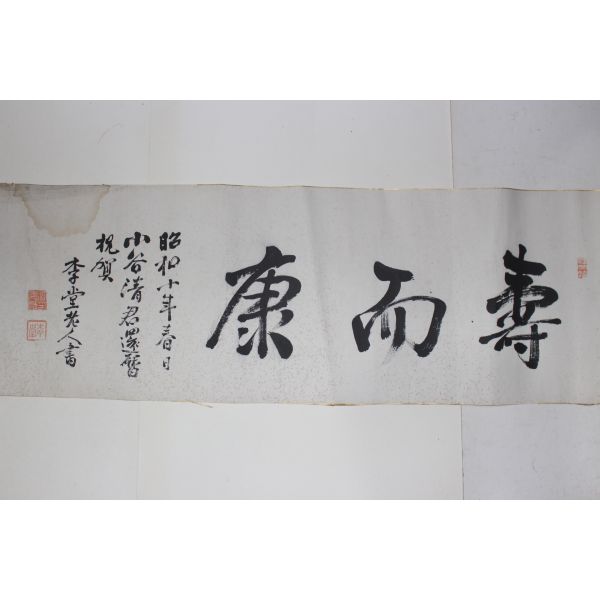 壽而康
昭和十年春日
小谷清君還暦
祝賀
李堂老人書